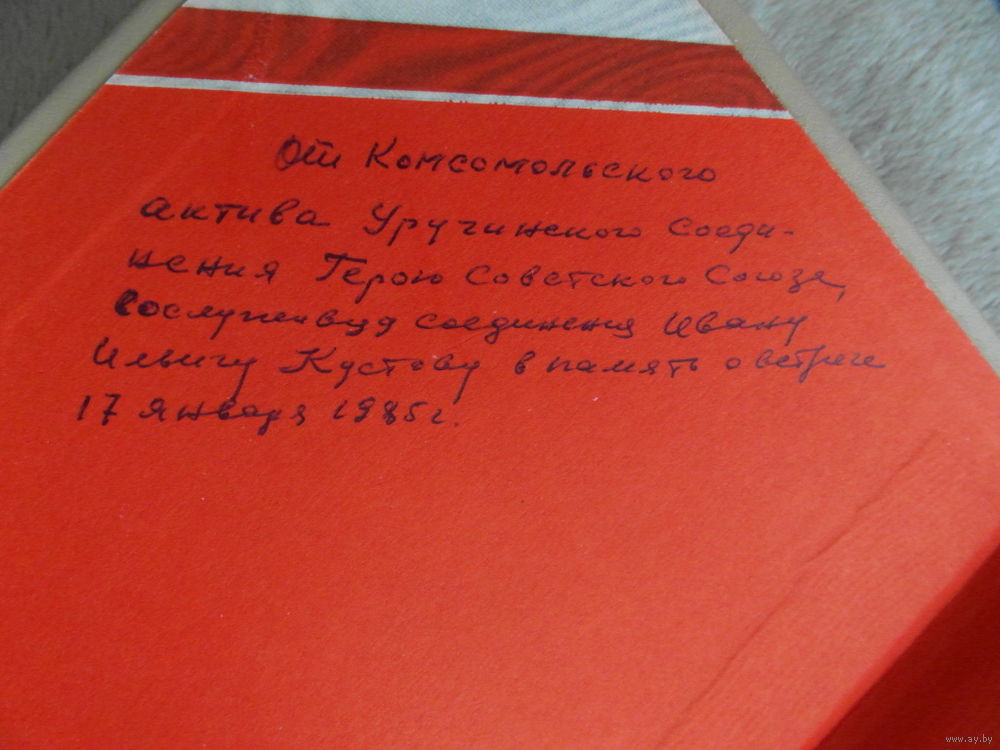 От Комсомольского
актива Уручинского Соеди-
нения Герою Советского Союза,
сослуживцу соединения Ивану
Ильичу Кустову в память о встрече
17 января 1985г.
www.ay.by